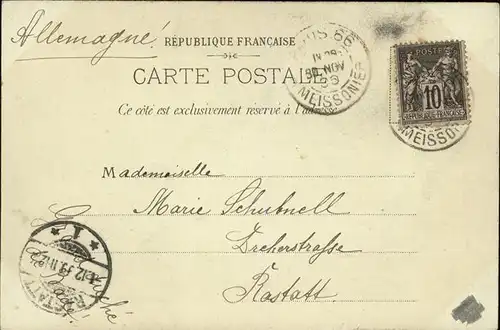 Allemagne!
RÉPUBLIQUE FRANÇAISE
CARTE POSTALE
Ce côté est exclusivement réservé à l'adresse
POSTE
10
REPUBLIQUE FRANÇAISE
30 NOV
MEISSONIER
MEISSON
Mademoiselle
Marie Schubnell
Dreherstrasse
Rastatt
RASTATT
1